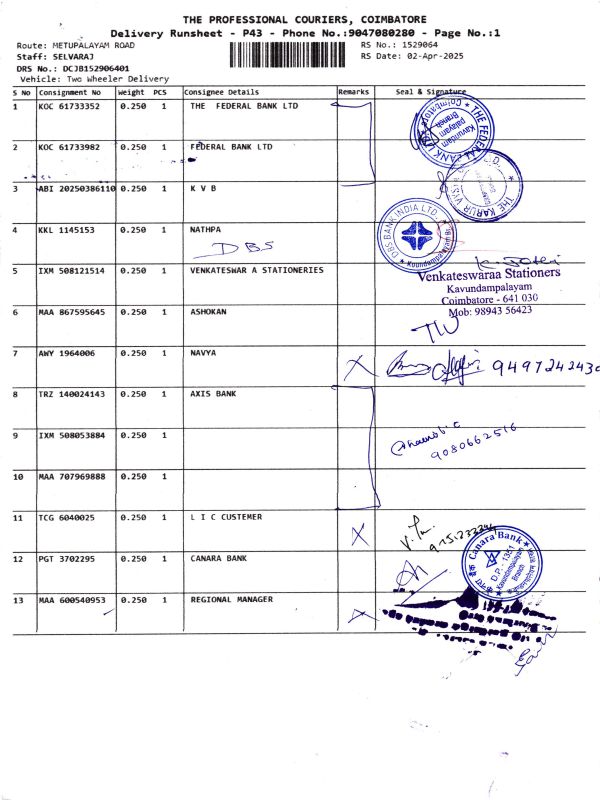 THE PROFESSIONAL COURIERS, COIMBATORE
Delivery Runsheet - P43 - Phone No.:9047080280 - Page No.:1
Route: METUPALAYAM ROAD RS No.: 1529064
Staff: SELVARAJ RS Date: 02-Apr-2025
DRS No.: DCJB152906401
Vehicle: Two Wheeler Delivery
S No Consignment No Weight PCS Consignee Details Remarks Seal & Signature
1 KOC 61733352 0.250 1 THE FEDERAL BANK LTD
THE FEDERAL BANK LTD. Kavundam palayam Branch Coimbatore
2 KOC 61733982 0.250 1 FEDERAL BANK LTD
3 ABI 20250386110 0.250 1 K V B
THE KARUR VYSYA
4 KKL 1145153 0.250 1 NATHPA
DBS
DBS BANK INDIA LTD. Koundampalayam Br.
5 IXM 508121514 0.250 1 VENKATESWAR A STATIONERIES
Venkateswaraa Stationers
Kavundampalayam
Coimbatore - 641 030
Mob: 98943 56423
6 MAA 867595645 0.250 1 ASHOKAN
7 AWY 1964006 0.250 1 NAVYA X
8 TRZ 140024143 0.250 1 AXIS BANK
9 IXM 508053884 0.250 1
9080662516
10 MAA 707969888 0.250 1
11 TCG 6040025 0.250 1 L I C CUSTEMER X
12 PGT 3702295 0.250 1 CANARA BANK
Canara Bank D.P. - 1351 Kavundampalayam Branch
13 MAA 600540953 0.250 1 REGIONAL MANAGER X